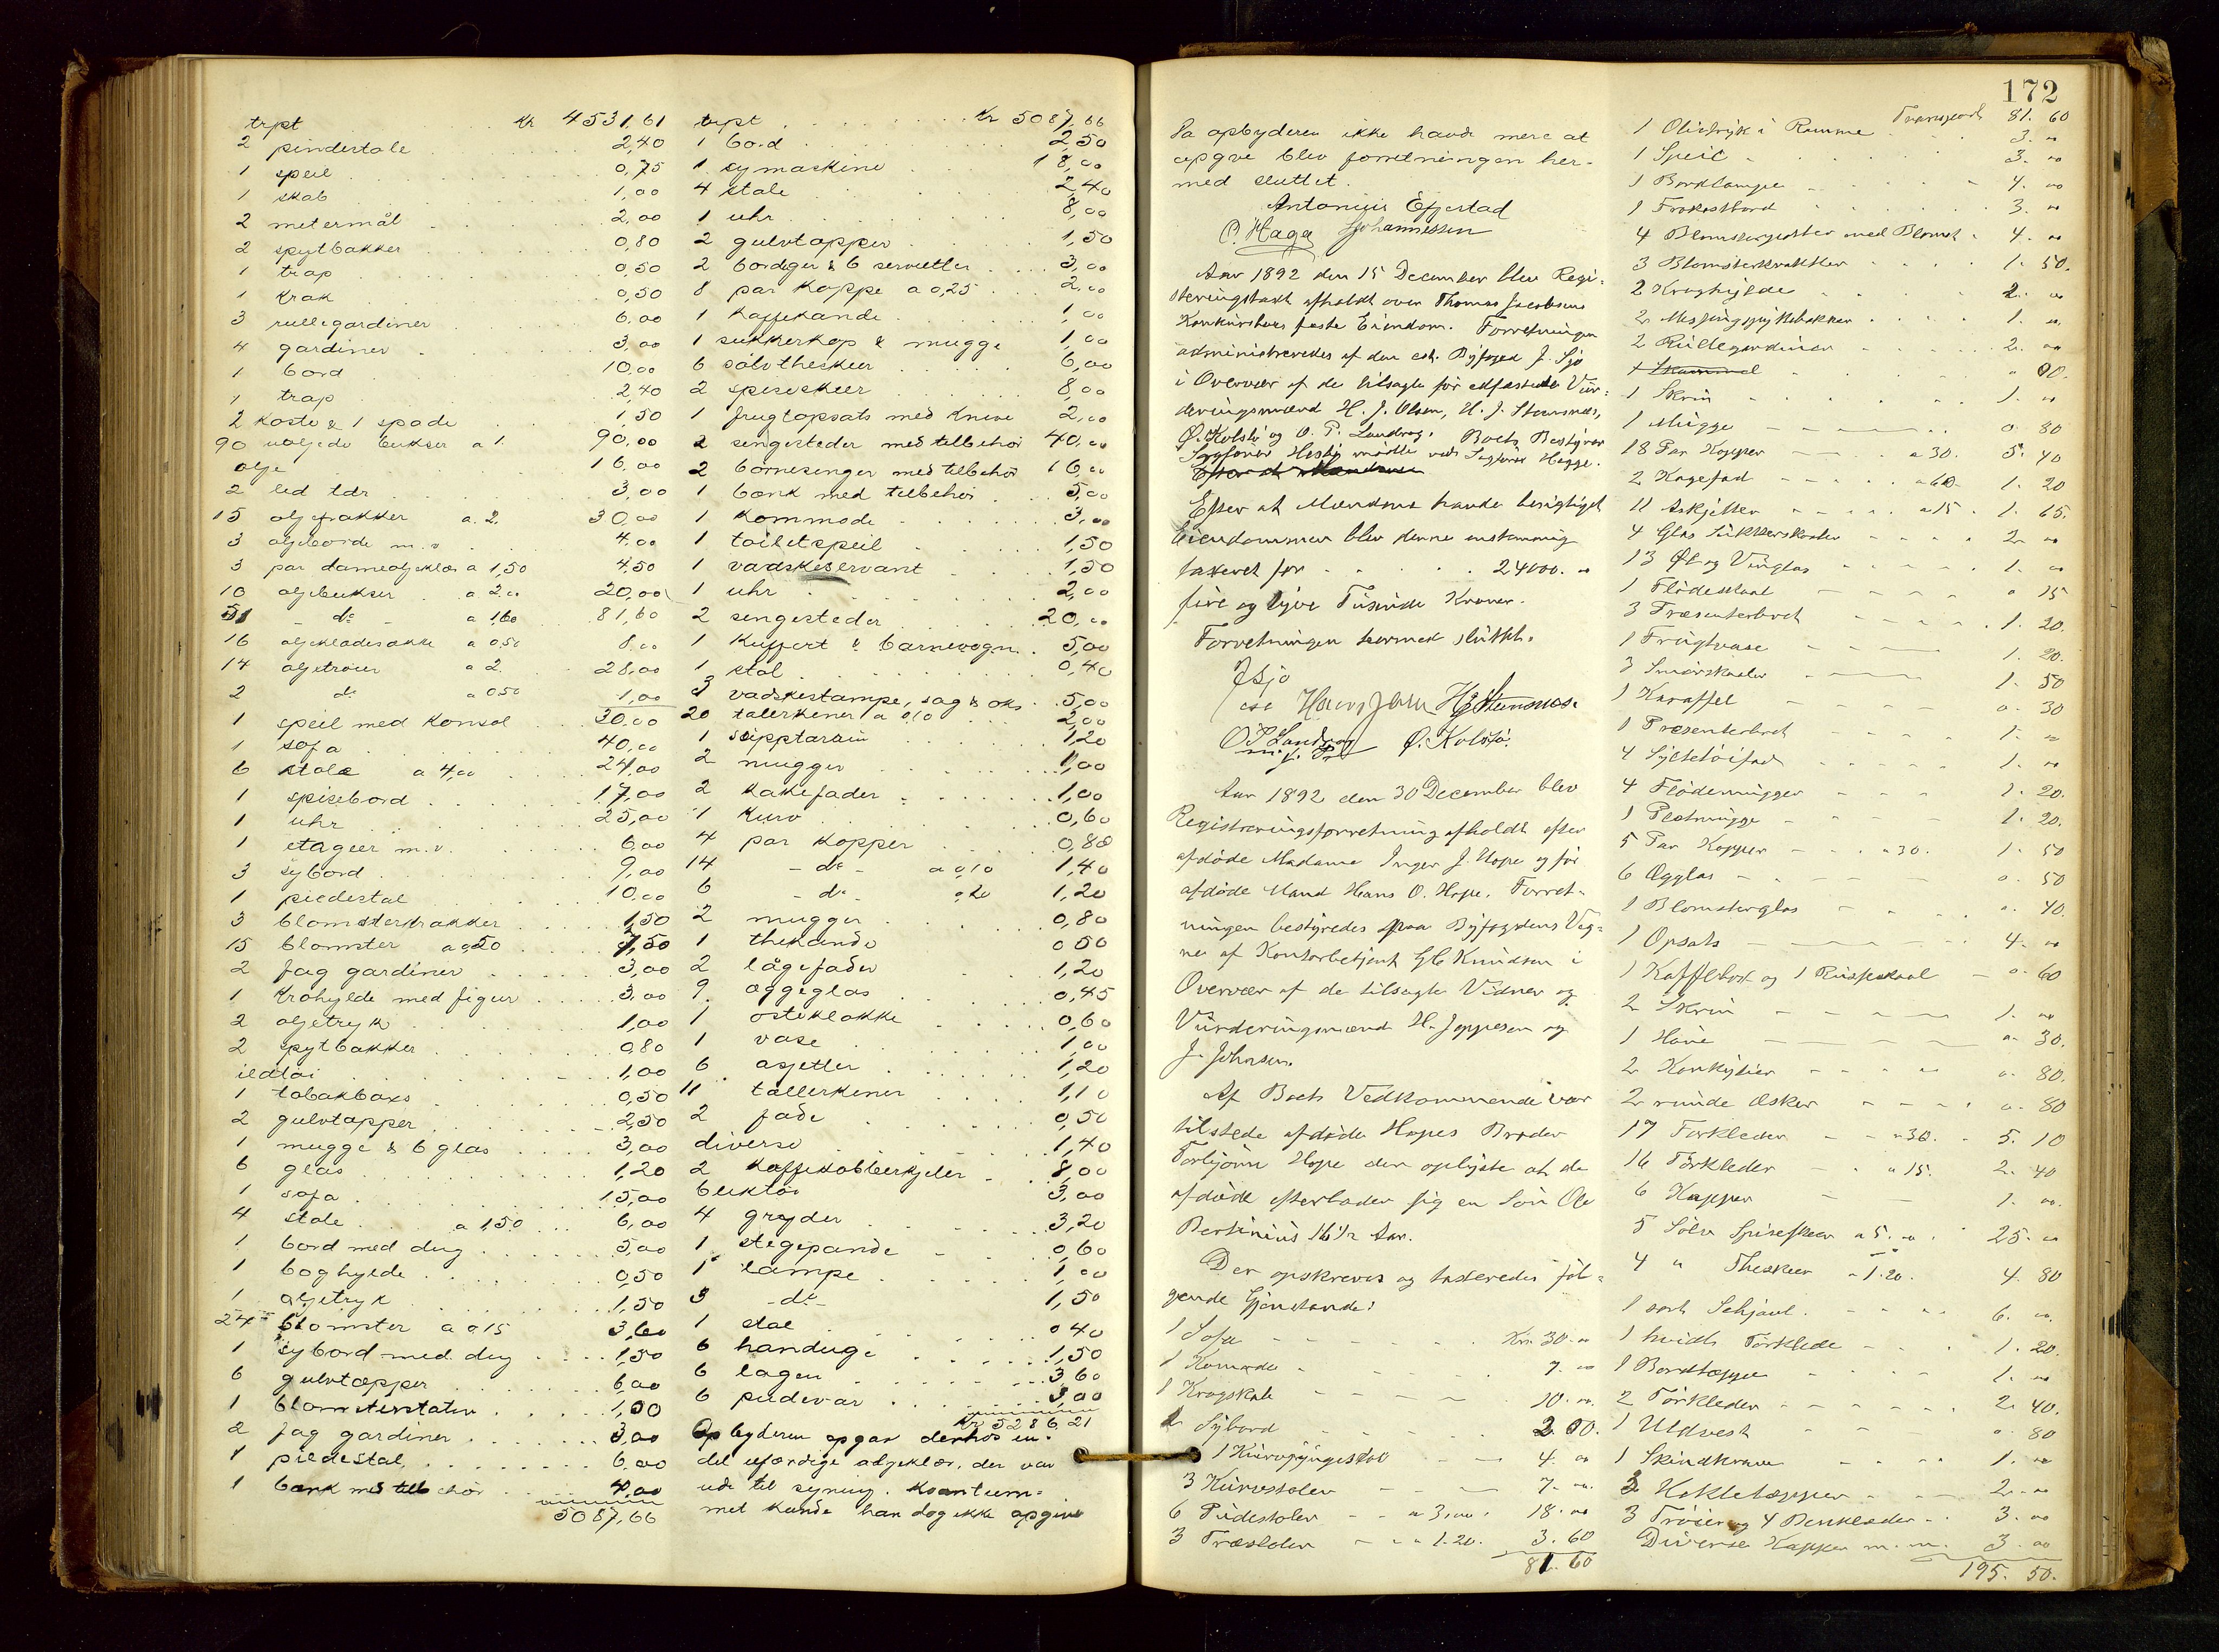 trpt . . . Kr 4531,61
2 pindestole . . 2,40
1 speil . . 0,75
1 skab . . 1,00
2 metermål . . 2,00
2 spytbakker . . 0,80
1 trap . . 0,50
1 krak . . 0,50
3 rullegardiner . . 6,00
4 gardiner . . 3,00
1 bord . . 10,00
1 trap . . 2,40
2 koste & 1 spade . . 1,50
90 uoljede bukser a 1. 90,00
olje . . 16,00
2 led tdr . . 3,00
15 oljefrakker a. 2. 30,00
3 oljeborde m.v . . 4,00
3 par dameoljeklær a 1,50 4,50
10 oljebukser . a 2,00 20,00
51 - do - a 1,60 81,60
16 oljeklædesække a 0,50 8,00
14 oljetrøier a 2. 28,00
2 do a 0,50 1,00
1 speil med konsol . . 30,00
1 sofa . . 40,00
6 stole a 4,00 . . 24,00
1 spisebord . . 17,00
1 uhr . . 25,00
1 etageer m.v. . . 6,00
3 sybord . . 9,00
1 piedestal . . 10,00
3 blomsterkrakker . . 1,50
15 blomster a 0,50 . . 7,50
2 fag gardiner . . 3,00
1 krohylde med figur . . 3,00
2 oljetryk . . 1,00
2 spytbakker . . 0,80
ildtøi . . 1,00
1 tobakbaxs . . 0,50
2 gulvtæpper . . 2,50
1 mugge & 6 glas . . 3,00
6 glas . . 1,20
1 sofa . . 15,00
4 stole . a 1,50 . . 6,00
1 bord med dug . . 5,00
1 boghylde . . 0,50
1 oljetryk . . 1,50
24 blomster a 0,15 3,60
1 sybord med dug . . 1,50
6 gulvtæpper . . 6,00
1 blomsterstativ . . 1,00
2 fag gardiner . . 3,00
1 piedestal . . 6,00
1 bænk med tilbehør . . 4,00
5087,66
trpt . . . Kr 5087,66
1 bord . . 2,50
1 symaskine . . 18,00
4 stole . . 2,40
1 uhr . . 8,00
2 gulvtæpper . . 1,50
2 bordiger & 6 servietter . . 3,00
8 par koppe a 0,25 . . 2,00
1 kaffekande . . 1,00
1 sukkerkop & mugge 1,00
6 sølvtheskeer . . 6,00
2 spiseskeer . . 8,00
1 frugtopsats med knive 2,00
2 sengesteder med tilbehør 40,00
2 børnesenger med tilbehør 16,00
1 bænk med tilbehør . . 5,00
1 kommode . . 3,00
1 toiletspeil . . 1,50
1 vadskeservant . . 1,50
1 uhr . . 2,00
2 sengesteder . . 20,00
1 kuffert & barnevogn . 5,00
1 stol . . 0,40
3 vadskestampe, sag & øks . 5,00
20 talerkener a 0,10 . . 2,00
1 supptarin . . 1,20
2 mugger . . 1,00
2 kakefader . . 1,00
1 kurv . . 0,60
4 par kopper . . 0,88
14 - do - a 0,10 1,40
6 - do - ,20 1,20
2 mugger . . 0,80
1 thekande . . 0 50
2 lågefader . . 1,20
9 æggeglas . . 0,45
1 osteklokke . . 0,60
1 vase . . 1,00
6 asjetter . . 1,20
11 tallerkener . . 1,10
2 fade . . 0,50
diverse . . 1,40
2 kaffekobberkjeler . . 8,00
bliktøi . . 3,00
4 gryder . . 3,20
1 stegepande . . 0,60
1 lampe . . 1,00
3 - do - 1,50
1 stol . . 0 40
6 handuge . . 1,50
6 lagen . . 3,60
6 pudevar . . 3,00
Kr 5286,21
Opbyderen opgav derhos en
del uferdige oljeklær, der var
ude til syning. Kvantum-
met kunde han dog ikke opgive
172
Da opbyderen ikke havde mere at
opgive blev forretningen her-
med sluttet.
Antonius Eggestad
O. Haga Johannessen
Aar 1892 den 15 December blev Regi-
steringstaxt afholdt over Thomas Jacobsens
Konkursboes faste Eiendom. Forretningen
administreredes af den cst. Byfoged J. Sjo
i Overvær af de tilsagte før edfæstede Vur-
deringsmænd H. J. Olsen, H. J. Stumsnæs,
Ø. Kolstø og O. P. Landrog. Boets Bestyrer
Sagfører Hesby mødte ved Sagfører Hagge.
Efter at Mændene
Efter at Mændene havde besigtiget
Eiendommen blev denne enstemmig
taxeret for . . . . 24000. 00
fire og tyve Tusinde Kroner.
Forretningen hermed sluttet.
J Sjo
cst Hans J Olsen H J Stumsnæs.
O P Landrog Ø. Kolstø.
m. f. P.
Aar 1892 den 30 December blev
Registreringsforretning afholdt efter
afdøde Madame Inger J. Hope og før
afdøde Mand Hans O. Hope. Forret-
ningen bestyredes paa Byfogdens Veg-
ne af Kontorbetjent G C Knudsen i
Overvær af de tilsagte Vidner og
Vurderingsmænd H. Jeppesen og
J. Johnsen.
Af Boets Vedkommende var
tilstede afdøde Hopes Broder
Torbjørn Hope der oplyste at de
afdøde efterlader sig en Søn Ole
Bertinius 16 1/2 Aar.
Der opskreves og taxeredes føl-
gende Gjenstande:
1 Sofa - - - Kr. 30. 00
1 Komode - - 7. 00
1 Kragskab - - 10. 00
2 Sybord - - 2 00.
1 Kurvgyngestol - - 4. 00
3 Kurvestoler - - 7. 00
6 Pudestoler - - a 3,00. 18. 00
3 Træstoler - - a 1.20. 3. 60
81. 60
Transport 81. 60
1 Olietryk i Ramme 3. 00
1 Speil - - 3. 00
1 Bordlampe - - 4. 00
1 Frokostbord - - 3. 00
4 Blomsterpotter med Blomst - 4. 00
3 Blomsterkrakker - - 1. 50.
2 Kraghylde - - 2. 00
2 Messingspyttebakker - - 1. 00
2 Rullegardiner - - 2. 00
1 Skammel - - 00.
1 Skrin - - 1. 00
1 Mugge - - 0 80
18 Par Kopper - - a 30. 5. 40
2 Kagefad - - a 60 1. 20
11 Askjetter - - a 15. 1. 65.
4 Glas Sukkerskaaler - - 2. 00
13 Øl og Vinglas - - 1. 00
1 Flødeskaal - - 0 15
3 Præsenterbret - - 1. 20.
1 Frugtvase - - 1. 20.
3 Smørskaaler - - 1. 50
1 Karaffel - - 0. 30
1 Præsenterbret - - 1. 00
4 Syltetøifad - - 1. 00
4 Flødemugger - - 1. 20.
1 Pletmugge - - 1. 20.
5 Par Kopper - - a 30. 1. 50
6 Ægglas - - 0. 50
1 Blomsterglas - - 0. 40.
1 Opsats - - 4. 00
1 Kaffebret og 1 Puspokal - 0. 60
2 Skrin - - 1. 00
1 Høne - - 0. 30.
2 Konkylier - - 0. 80.
2 runde Æsker - - 0. 80
17 Forklæder - - a 30. - 5. 10
16 Tørklæder - - a 15. 2. 40
6 Kapper - - 1. 00.
5 Sølv Spiseskeer a 5. 00 . 25. 00
4 " Theskeer a 1.20. 4. 80
1 sort Schjavl. - - 6. 00.
1 hvidt Tørklede - - 1. 20.
1 Bordtæppe - - 1. 00
2 Tørkleder - - 2. 40.
1 Uldvest - - 0. 80
1 Skindkrave - - 1. 00
3 Hekletæpper - - 2. 00
3 Trøier og 4 Benklæder - . 3. 00
Diverse Kapper m. m. 3. 00
195. 50.